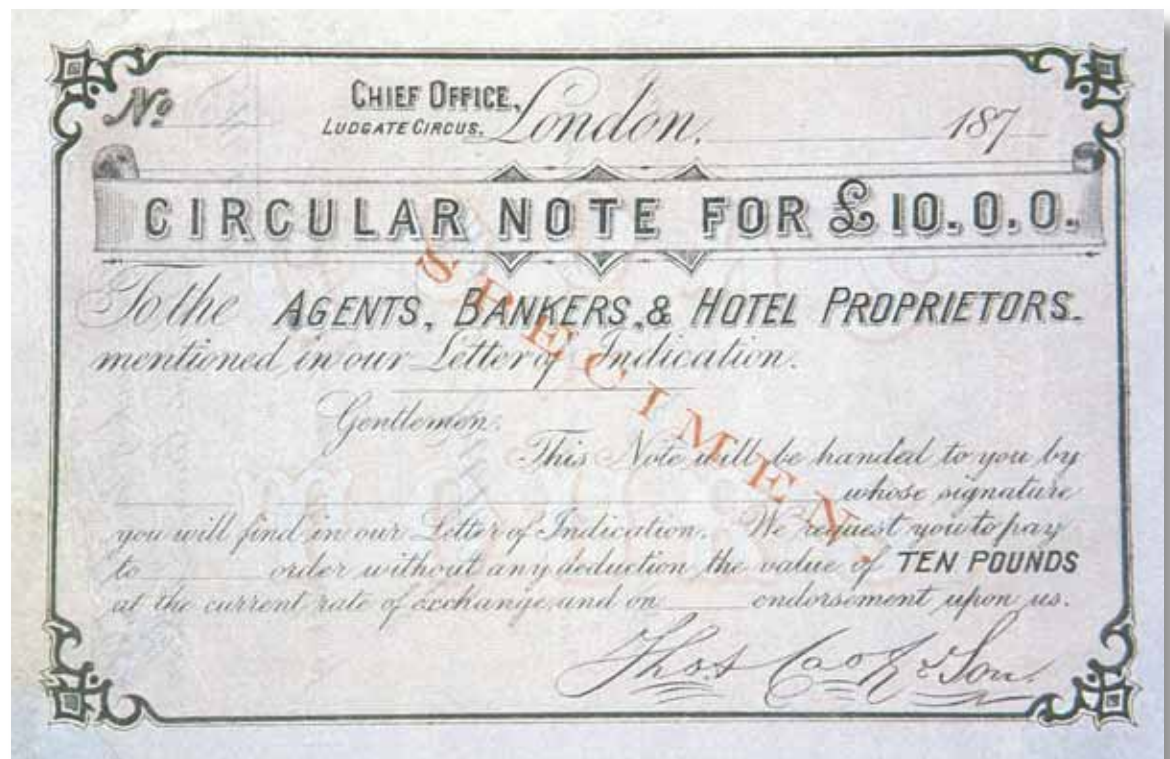 No CHIEF OFFICE, LUDGATE CIRCUS. London. 187
CIRCULAR NOTE FOR £10.0.0.
To the AGENTS, BANKERS, & HOTEL PROPRIETORS.
mentioned in our Letter of Indication.
Gentlemen.
This Note will be handed to you by
whose signature
you will find in our Letter of Indication. We request you to pay
to order without any deduction the value of TEN POUNDS
at the current rate of exchange, and on endorsement upon us.
Thos. Cook & Son.
SPECIMEN.